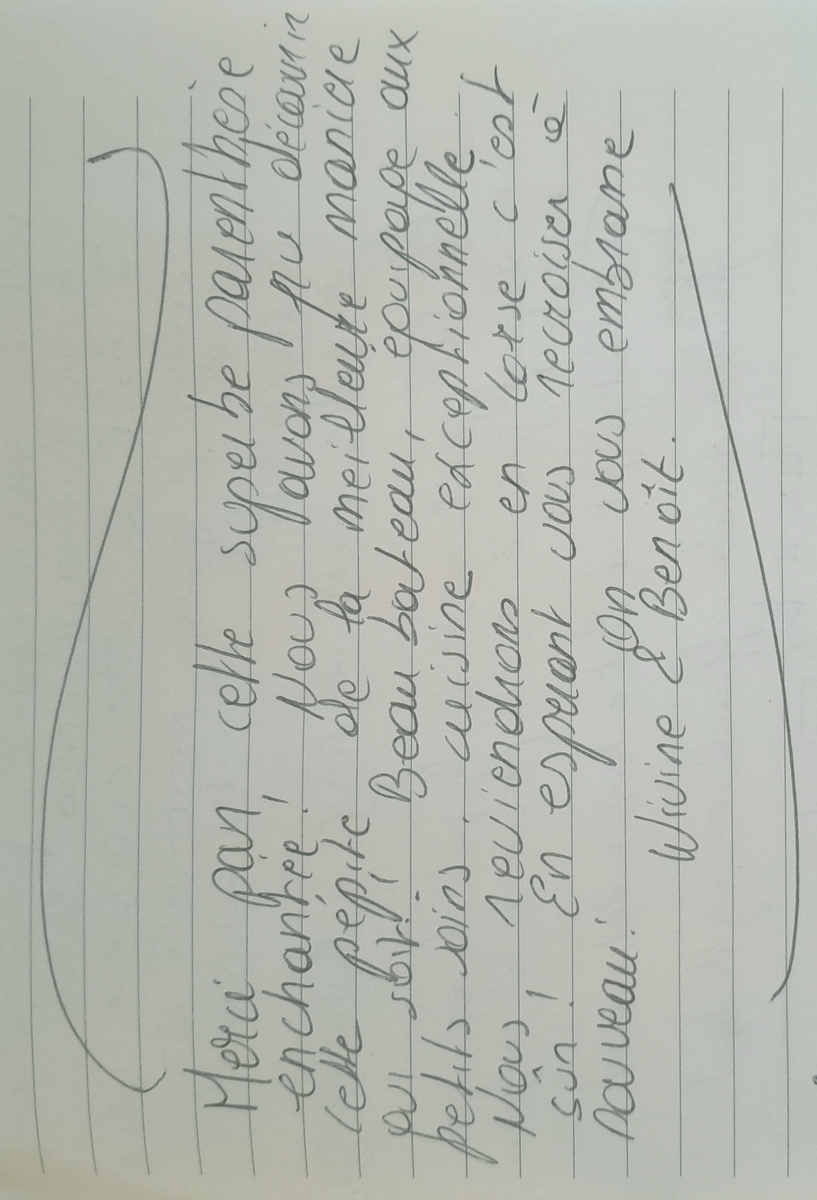 Merci pour cette superbe parenthèse
enchantée! Nous avons pu découvrir
cette pépite de la meilleure manière
qui soit! Beau bateau, équipage aux
petits soins, cuisine exceptionnelle
Nous reviendrons en Corse c'est
sûr! En espérant vous recroiser à
nouveau! On vous embrasse
Wivine & Benoît.